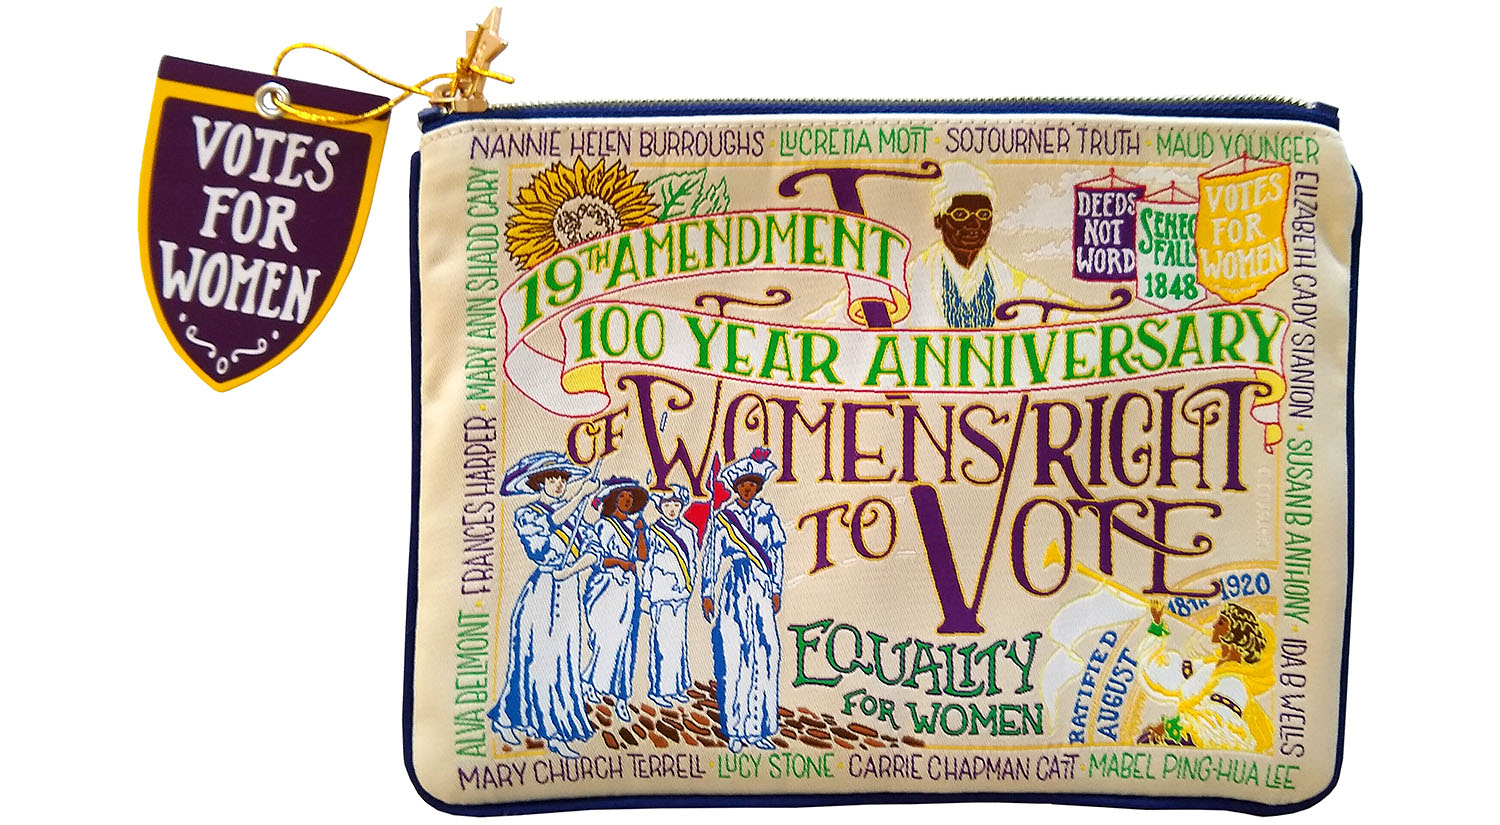 VOTES
FOR
WOMEN
NANNIE HELEN BURROUGHS · LUCRETIA MOTT · SOJOURNER TRUTH · MAUD YOUNGER
ELIZABETH CADY STANTON · SUSAN B ANTHONY · IDA B WELLS
ALVA BELMONT · FRANCES HARPER · MARY ANN SHADD CARY
DEEDS
NOT
WORD
SENEC
FALL
1848
VOTES
FOR
WOMEN
19TH AMENDMENT
100 YEAR ANNIVERSARY
OF WOMENS RIGHT
TO VOTE
EQUALITY
FOR WOMEN
RATIFIED
AUGUST
18TH 1920
MARY CHURCH TERRELL · LUCY STONE · CARRIE CHAPMAN CATT · MABEL PING-HUA LEE